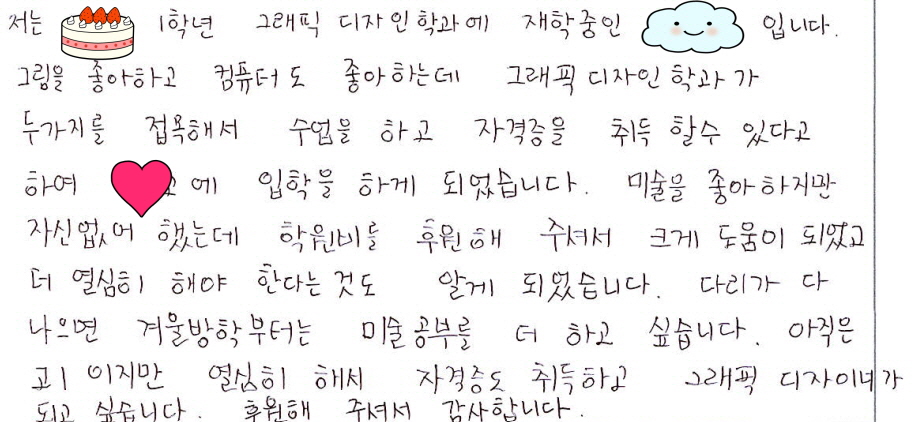 저는 1학년 그래픽 디자인학과에 재학중인 입니다.
그림을 좋아하고 컴퓨터도 좋아하는데 그래픽디자인학과가
두가지를 접목해서 수업을 하고 자격증을 취득 할수 있다고
하여 에 입학을 하게 되었습니다. 미술을 좋아하지만
자신없어 했는데 학원비를 후원해 주셔서 크게 도움이 되었고
더 열심히 해야 한다는것도 알게 되었습니다. 다리가 다
나으면 겨울방학부터는 미술공부를 더 하고 싶습니다. 아직은
고1 이지만 열심히 해서 자격증도 취득하고 그래픽 디자이너가
되고 싶습니다. 후원해 주셔서 감사합니다.